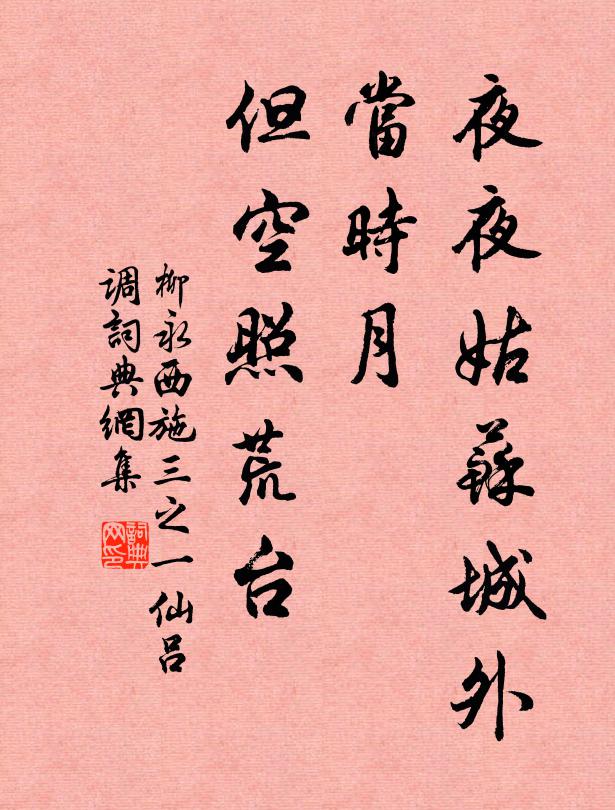 夜夜姑蘇城外
當時月
但空照荒台
柳永西施三之一仙吕
调詞典網集
詞典网印